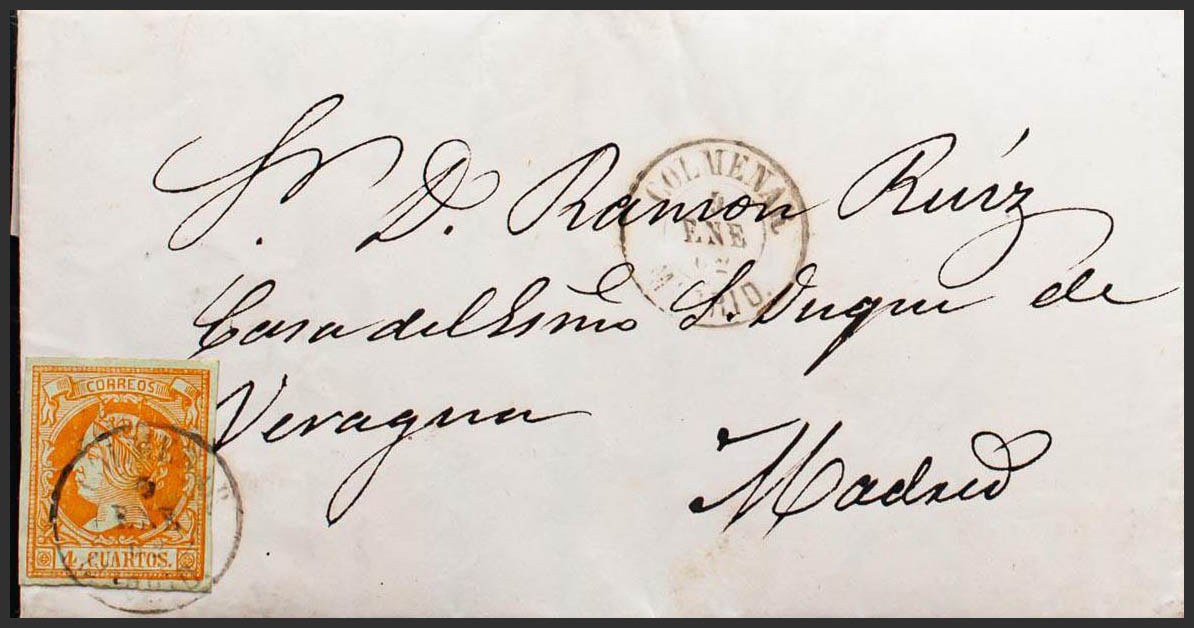 Sr. D. Ramon Ruíz
Casa del Esmo S. Duque de
Veragua
Madrid
COLMENAR
ENE
MADRID.
CORREOS
4 CUARTOS.
ENE